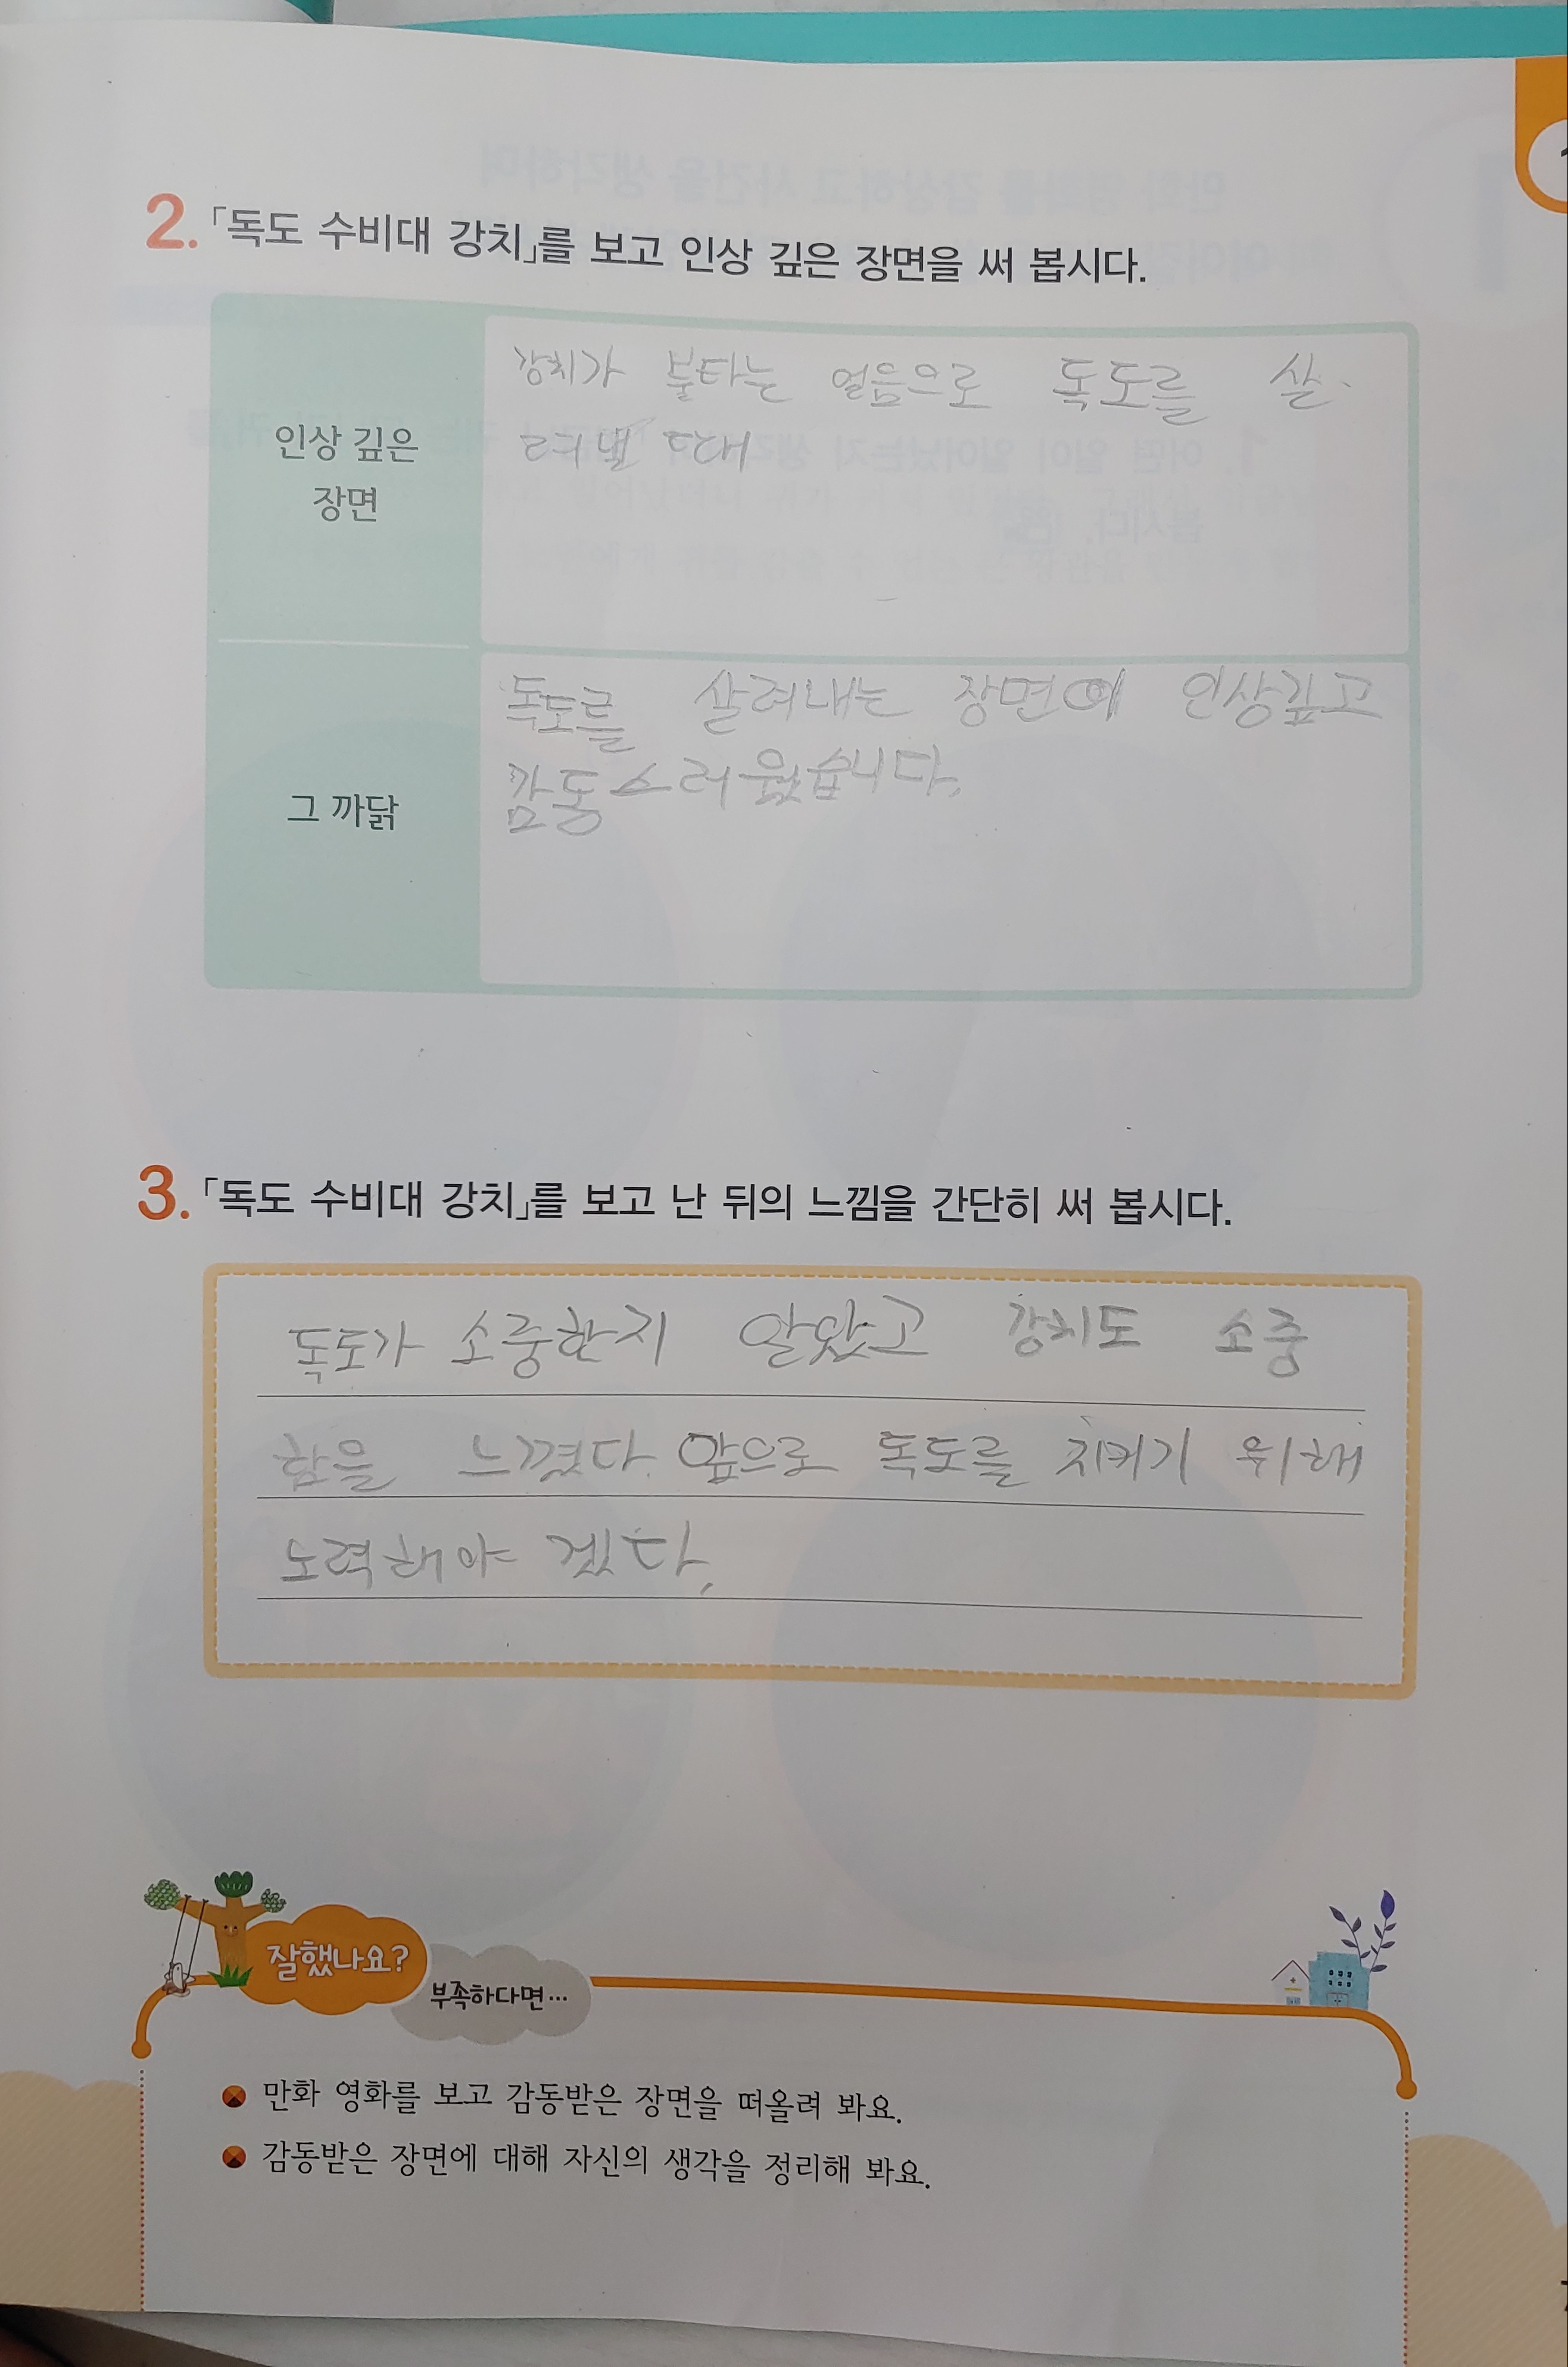 2. 「독도 수비대 강치」를 보고 인상 깊은 장면을 써 봅시다.
인상 깊은
장면
강치가 불타는 얼음으로 독도를 살
려낼 때
그 까닭
독도를 살려내는 장면이 인상깊고
감동스러웠습니다.
3. 「독도 수비대 강치」를 보고 난 뒤의 느낌을 간단히 써 봅시다.
독도가 소중한지 알았고 강치도 소중
함을 느꼈다. 앞으로 독도를 지키기 위해
노력해야 겠다.
잘했나요?
부족하다면…
만화 영화를 보고 감동받은 장면을 떠올려 봐요.
감동받은 장면에 대해 자신의 생각을 정리해 봐요.